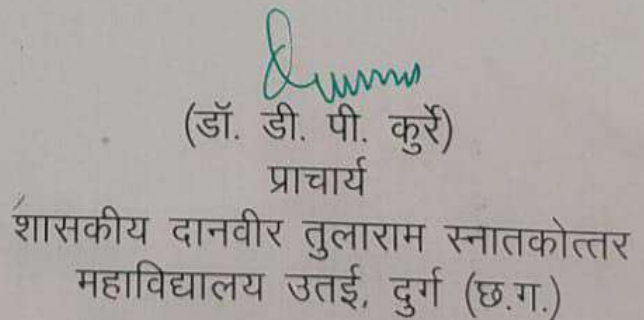 (डॉ. डी. पी. कुर्रे)
प्राचार्य
शासकीय दानवीर तुलाराम स्नातकोत्तर
महाविद्यालय उतई, दुर्ग (छ.ग.)